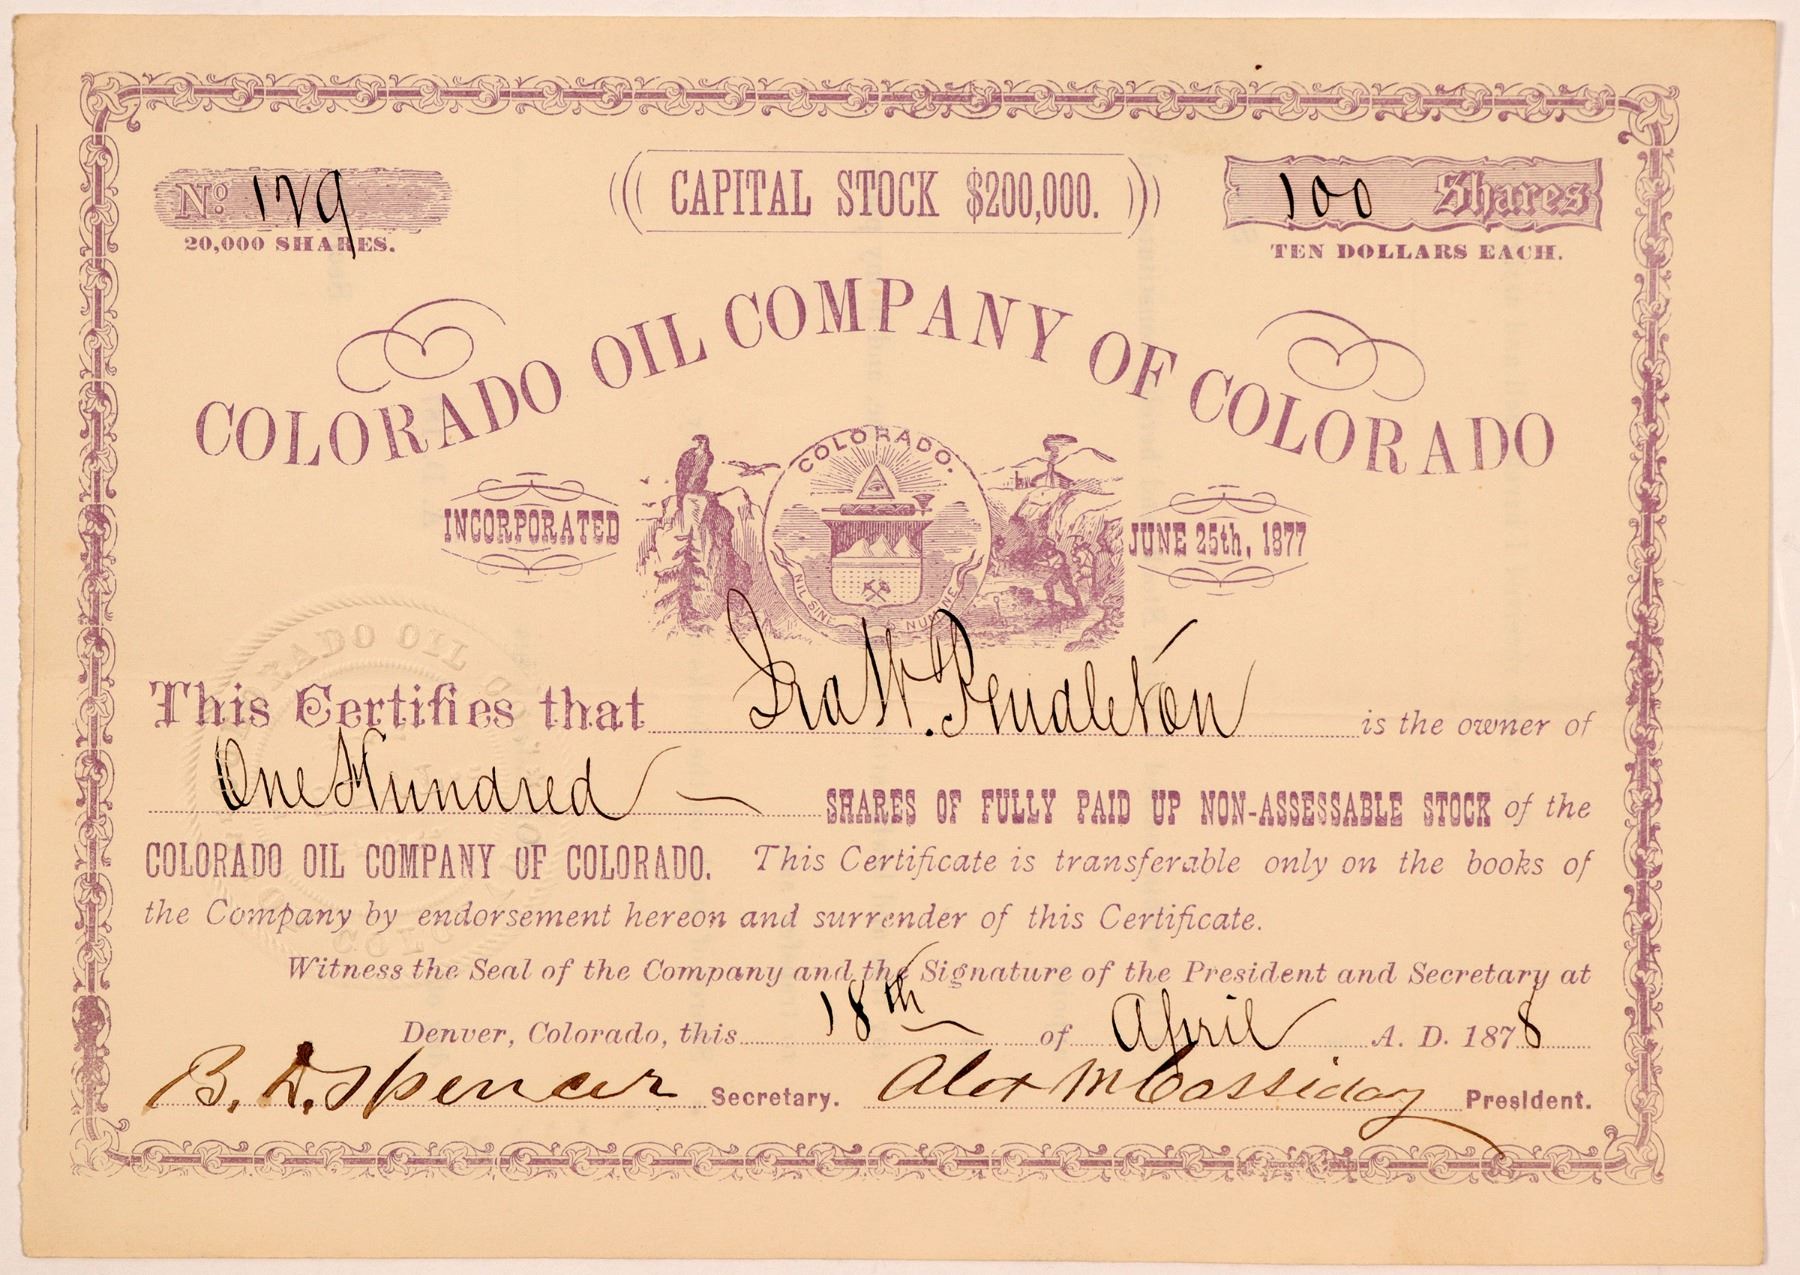 No. 129
20,000 SHARES.
CAPITAL STOCK $200,000.
100 Shares
TEN DOLLARS EACH.
COLORADO OIL COMPANY OF COLORADO
INCORPORATED
COLORADO.
NIL SINE NUMINE
JUNE 25th, 1877
This Certifies that Ira W. Pendleton is the owner of
One Hundred SHARES OF FULLY PAID UP NON-ASSESSABLE STOCK of the
COLORADO OIL COMPANY OF COLORADO. This Certificate is transferable only on the books of
the Company by endorsement hereon and surrender of this Certificate.
Witness the Seal of the Company and the Signature of the President and Secretary at
Denver, Colorado, this 18th of April A. D. 1878
B. D. Spencer Secretary. Alex McCassiday President.